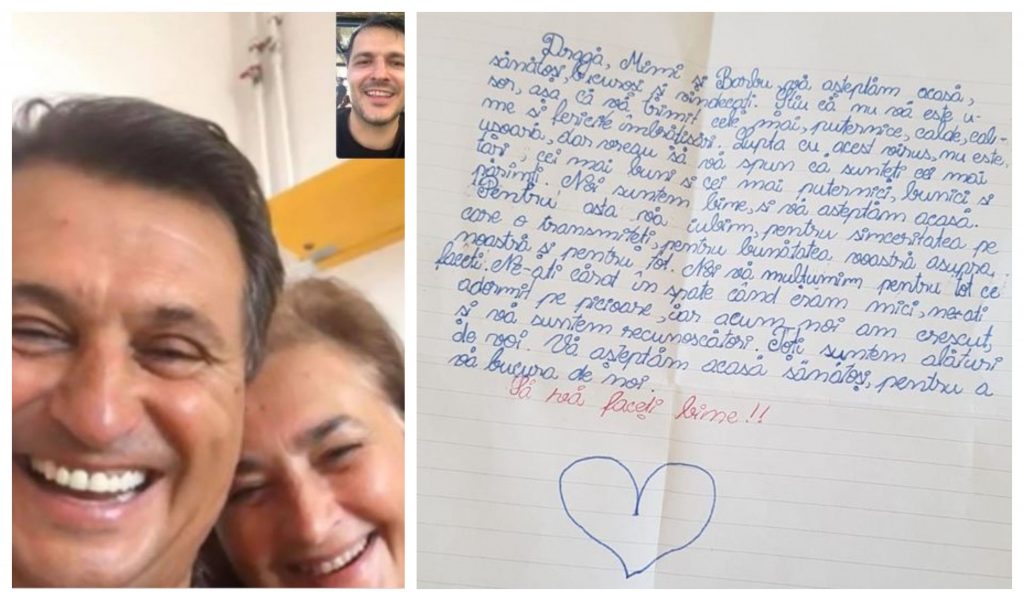 Dragă, Mimi și Barbu vă așteptăm acasă,
sănătoși, bucuroși și vindecați. Știu că nu vă este, u-
șor, așa că vă trimit cele mai, puternice, calde, cali-
me și fericite îmbrățișări. Lupta cu acest virus, nu este
ușoară, dar vreau să vă spun că sunteți cei mai
tari, cei mai buni și cei mai puternici, bunici și
părinți. Noi suntem bine, și vă așteptăm acasă.
Pentru asta vă iubim, pentru sinceritatea pe
care o transmiteți, pentru bunătatea voastră asupra
noastră și pentru tot. Noi vă mulțumim pentru tot ce
faceți. Ne-ați cărat în spate când eram mici, ne-ați
adormit pe picioare, iar acum noi am crescut,
și vă suntem recunoscători. Toți suntem alături
de voi. Vă așteptăm acasă sănătoși, pentru a
vă bucura de noi.
Să vă faceți bine!!